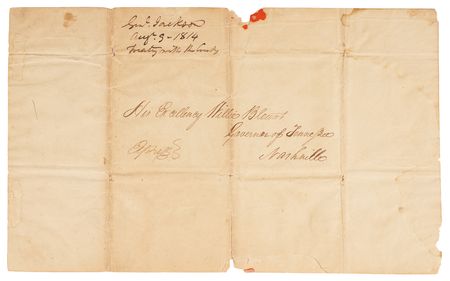 Genl. Jackson
Augt. 9 - 1814
Treaty with the Creeks
His Excellency Willie Blount
Governor of Tennessee
Nashville
Express